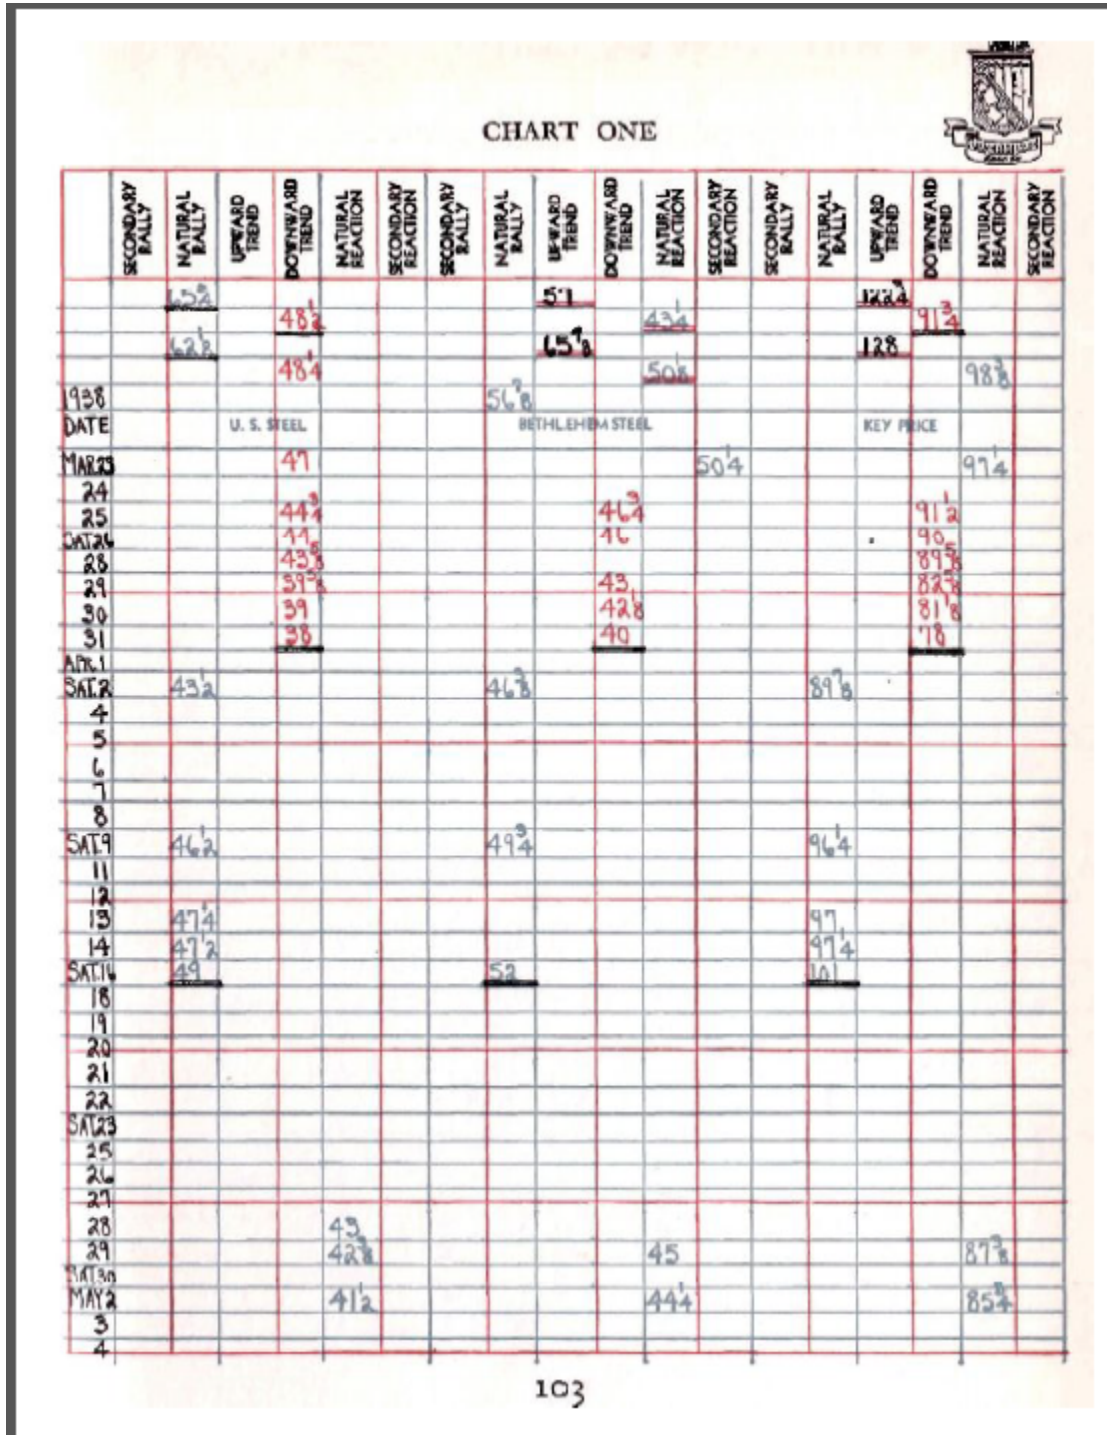 CHART ONE
SECONDARY RALLY NATURAL RALLY UPWARD TREND DOWNWARD TREND NATURAL REACTION SECONDARY REACTION SECONDARY RALLY NATURAL RALLY UPWARD TREND DOWNWARD TREND NATURAL REACTION SECONDARY REACTION SECONDARY RALLY NATURAL RALLY UPWARD TREND DOWNWARD TREND NATURAL REACTION SECONDARY REACTION
65 3/4 57 122 3/4
48 1/2 43 1/4 91 3/4
62 1/2 65 7/8 128
48 1/4 50 1/8 98 3/8
1938 56 7/8
DATE U. S. STEEL BETHLEHEM STEEL KEY PRICE
MAR.23 47 50 1/4 97 1/4
24
25 44 3/4 46 3/4 91 1/2
SAT.26 44 46 90
28 43 5/8 89 5/8
29 39 5/8 43 82 5/8
30 39 42 1/8 81 1/8
31 38 40 78
APR. 1
SAT.2 43 1/2 46 3/8 89 7/8
4
5
6
7
8
SAT.9 46 1/2 49 3/4 96 1/4
11
12
13 47 1/4 97
14 47 1/2 97 1/4
SAT.16 49 52 101
18
19
20
21
22
SAT.23
25
26
27
28 43
29 42 3/8 45 87 3/8
SAT.30
MAY 2 41 1/2 44 1/4 85 3/4
3
4
103